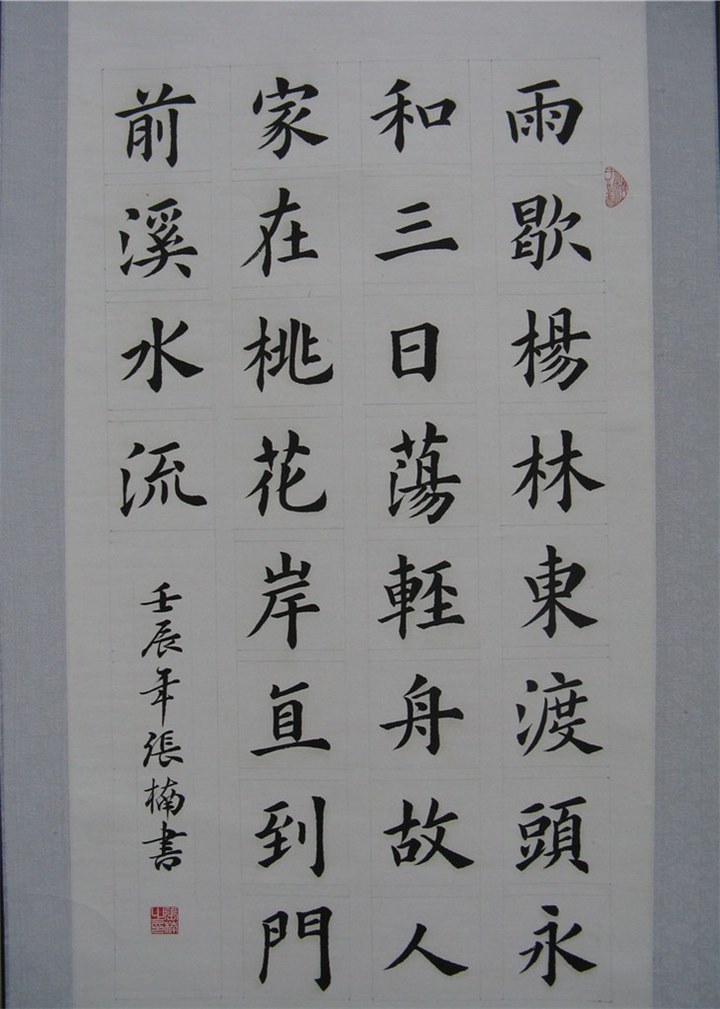 雨歇楊林東渡頭永
和三日蕩輕舟故人
家在桃花岸直到門
前溪水流
壬辰年張楠書